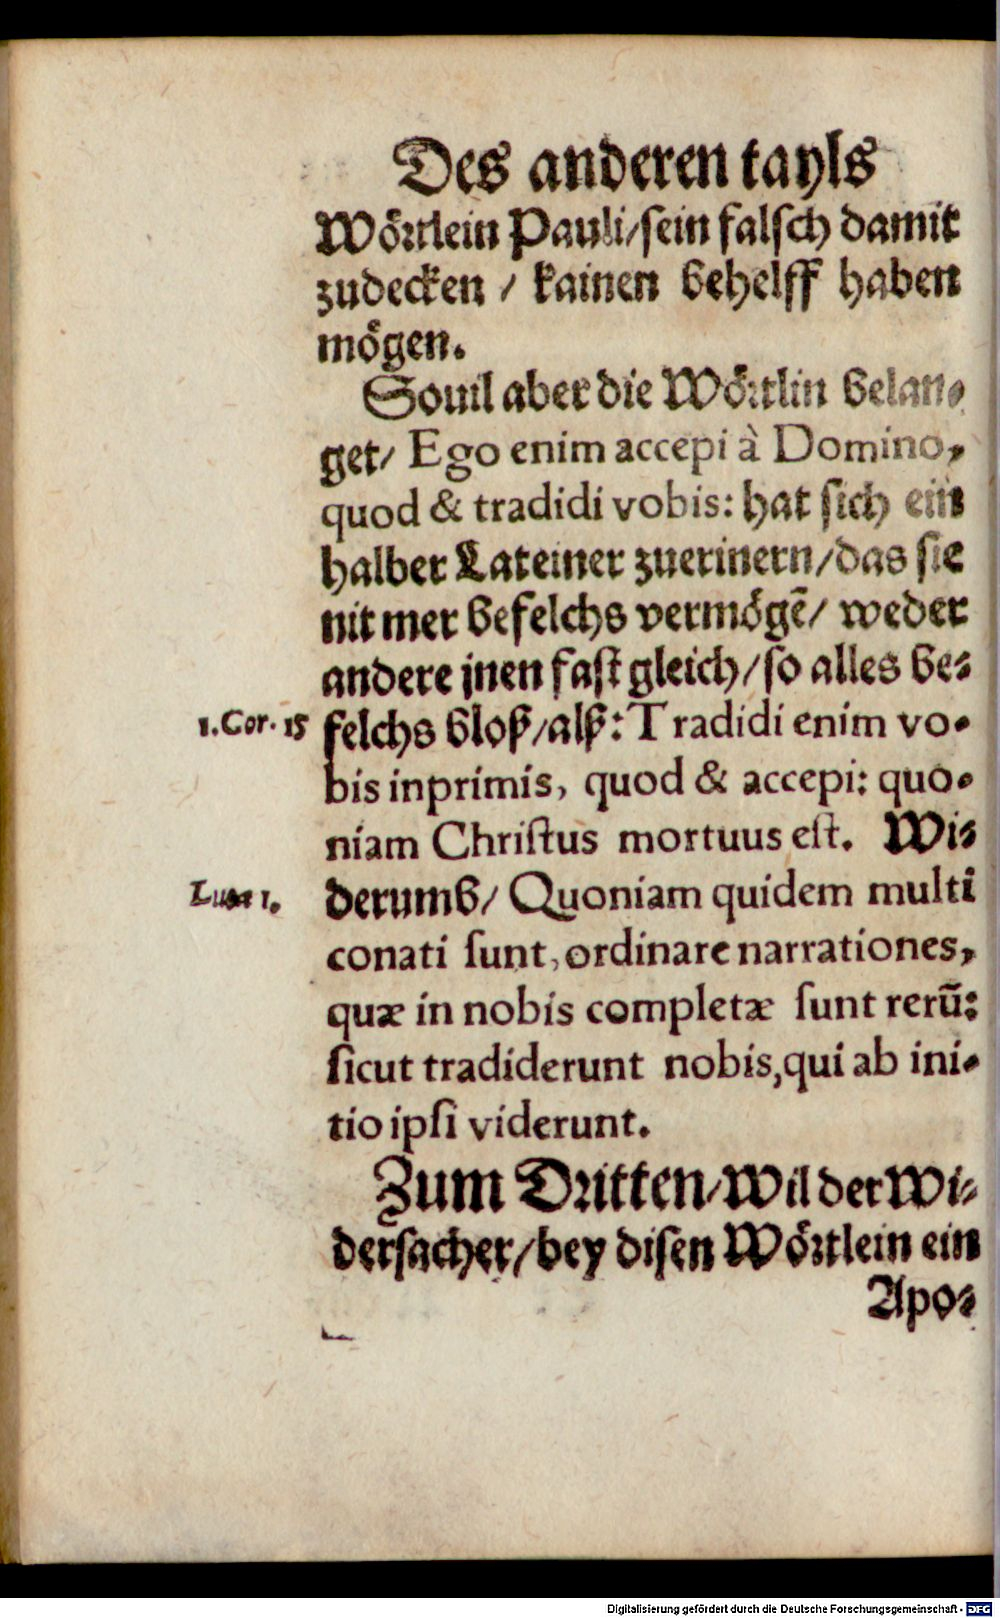 Des anderen tayls
Wörtlein Pauli/sein falsch damit
zudecken / kainen behelff haben
mögen.
Souil aber die Wörtlin belan-
get/ Ego enim accepi à Domino,
quod & tradidi vobis: hat sich ein
halber Lateiner zuerinern/das sie
nit mer befelchs vermögē/ weder
andere jnen fast gleich/so alles be-
1. Cor. 15 felchs bloß/alß: Tradidi enim vo-
bis inprimis, quod & accepi: quo-
niam Christus mortuus est. Wi-
Lucæ 1. derumb/ Quoniam quidem multi
conati sunt, ordinare narrationes,
quæ in nobis completæ sunt rerū:
sicut tradiderunt nobis, qui ab ini-
tio ipsi viderunt.
Zum Dritten/Wil der Wi-
dersacher/bey disen Wörtlein ein
Apo-
Digitalisierung gefördert durch die Deutsche Forschungsgemeinschaft - DFG